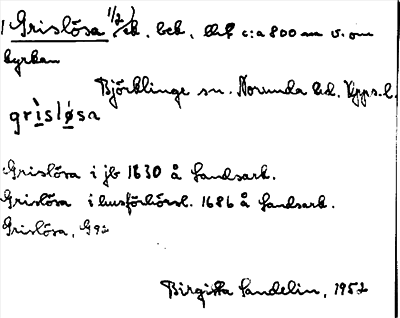 Grislösa 1/2 sk. beb. c:a 800 m v. om
kyrkan
Björklinge sn. Norunda hd. Upps.l.
grìsløsa
Grislösa i jb 1630 å Landsark.
Grislösa i husförhörsl. 1686 å Landsark.
Grislösa, G92
Birgitta Sandelin, 1952